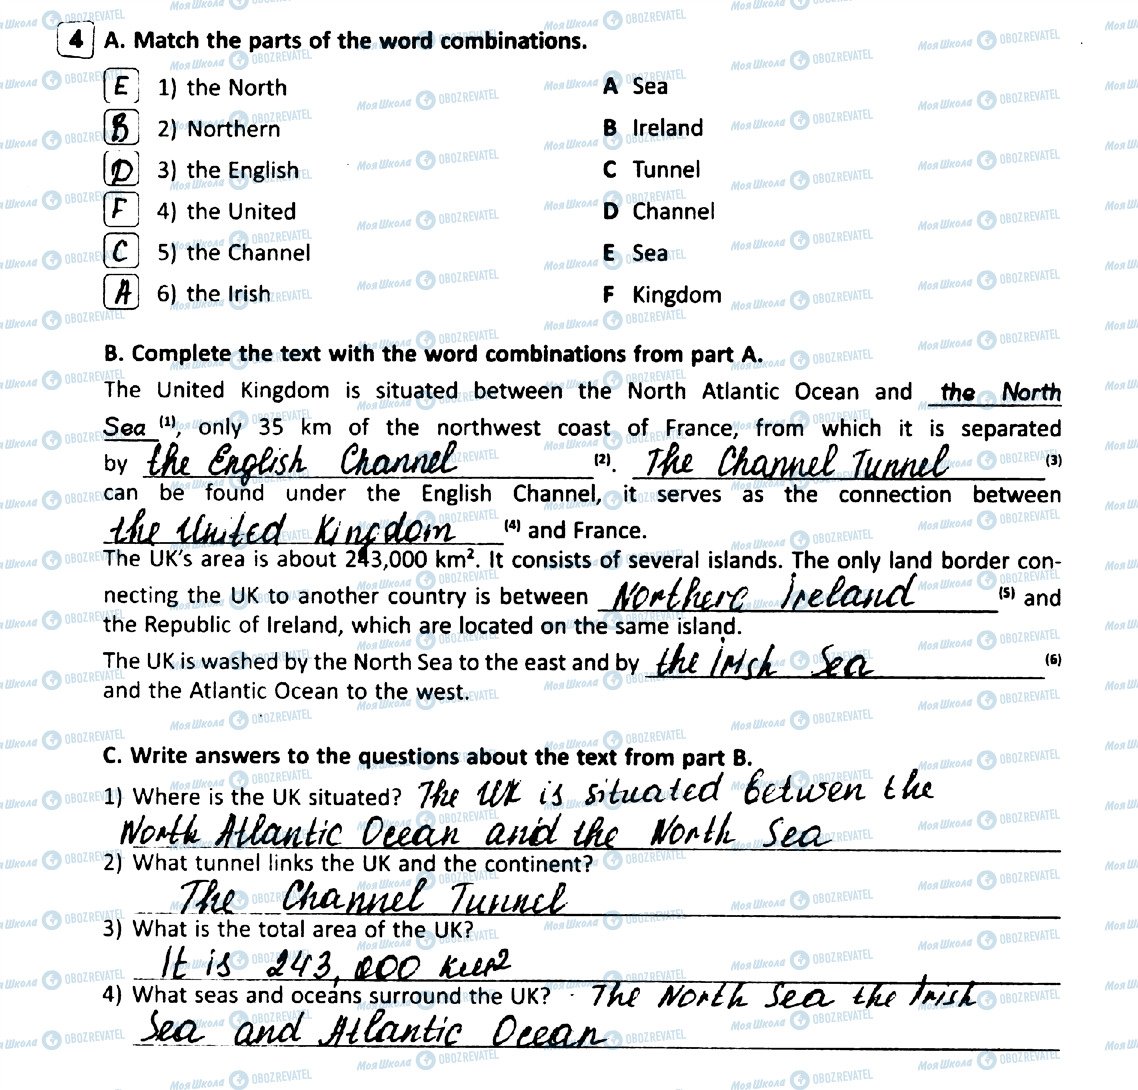 4 A. Match the parts of the word combinations.
E 1) the North A Sea
B 2) Northern B Ireland
D 3) the English C Tunnel
F 4) the United D Channel
C 5) the Channel E Sea
A 6) the Irish F Kingdom
B. Complete the text with the word combinations from part A.
The United Kingdom is situated between the North Atlantic Ocean and the North
Sea (1), only 35 km of the northwest coast of France, from which it is separated
by the English Channel (2). The Channel Tunnel (3)
can be found under the English Channel, it serves as the connection between
the United Kingdom (4) and France.
The UK's area is about 243,000 km². It consists of several islands. The only land border con-
necting the UK to another country is between Northern Ireland (5) and
the Republic of Ireland, which are located on the same island.
The UK is washed by the North Sea to the east and by the Irish Sea (6)
and the Atlantic Ocean to the west.
C. Write answers to the questions about the text from part B.
1) Where is the UK situated? The UK is situated betwen the
North Atlantic Ocean and the North Sea
2) What tunnel links the UK and the continent?
The Channel Tunnel
3) What is the total area of the UK?
It is 243,000 км²
4) What seas and oceans surround the UK? The North Sea the Irish
Sea and Atlantic Ocean
Моя Школа OBOZREVATEL